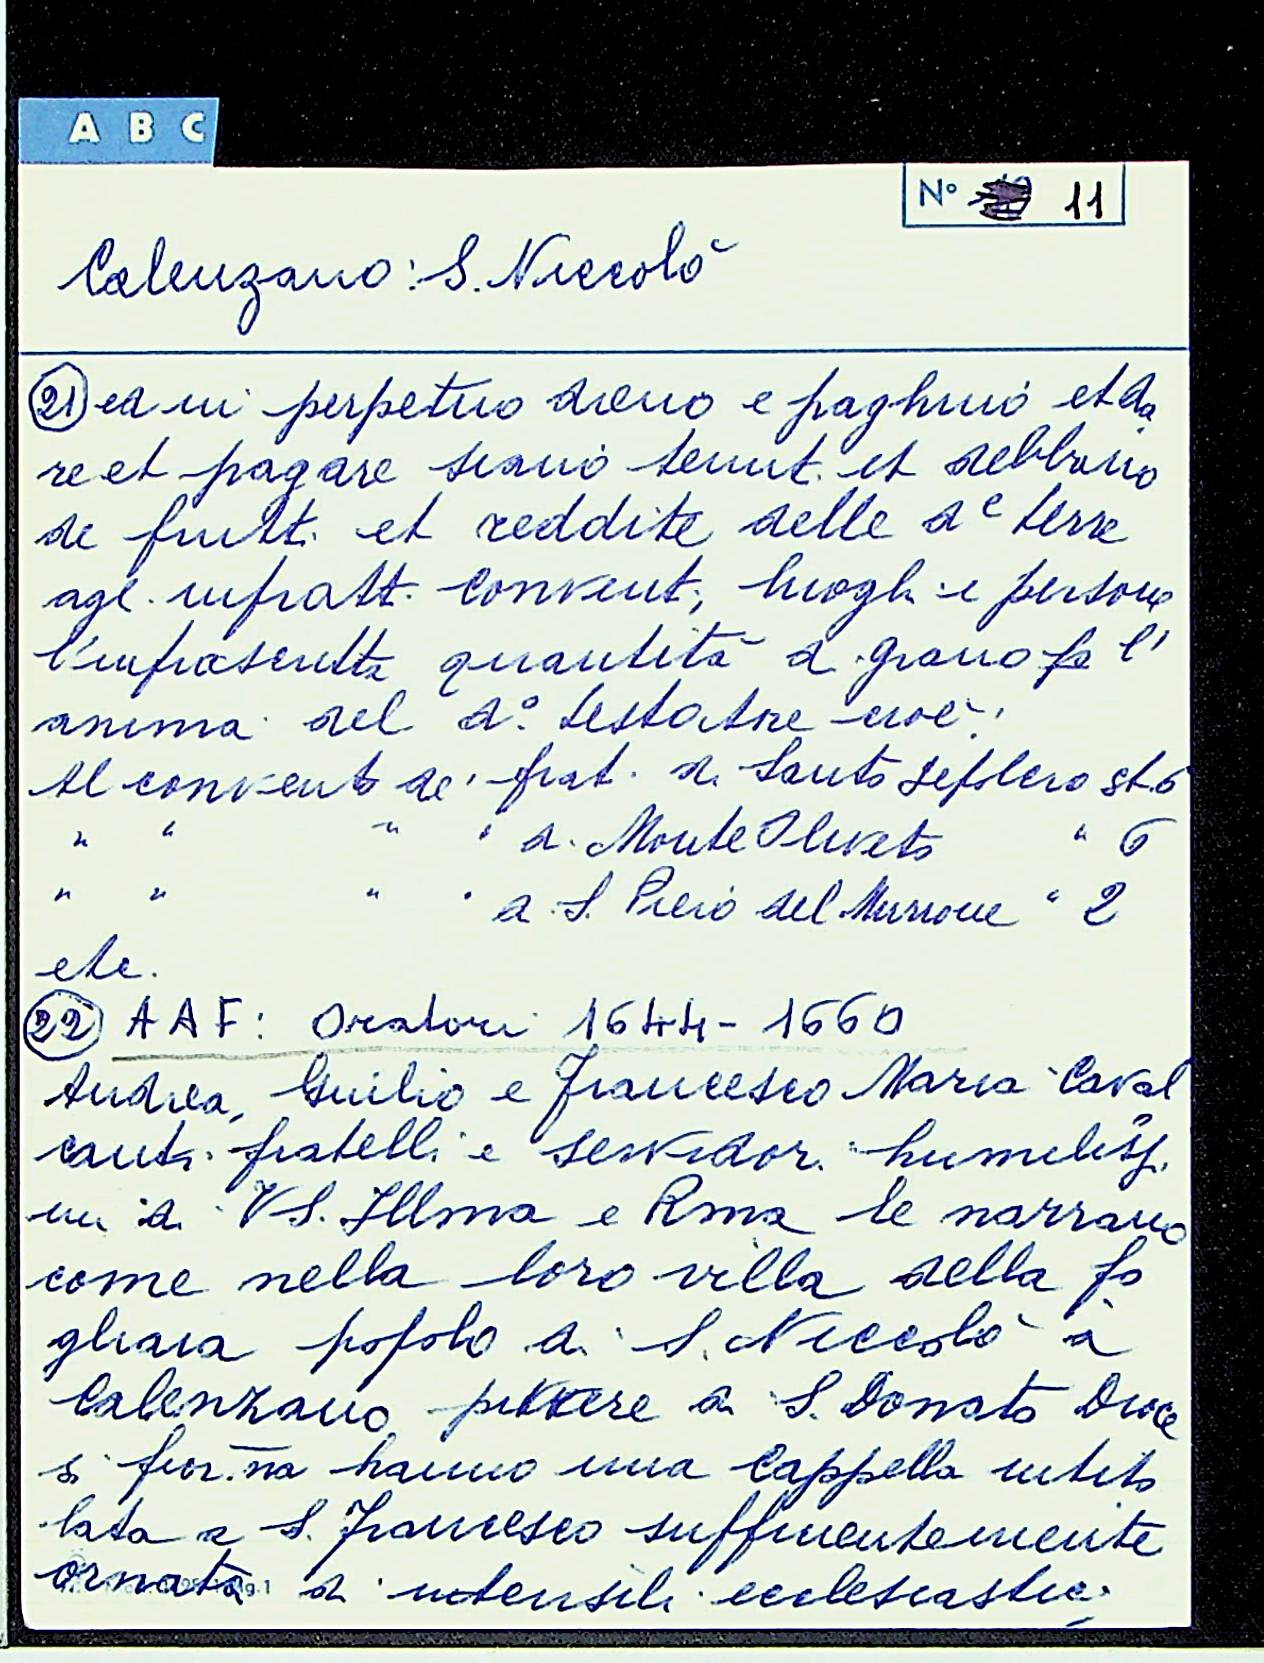 A B C
N° 11
Calenzano: S. Niccolò
21 et in perpetuo dieno e paghino et da
re et pagare siano tenuti et debbino
de frutti et reddite delle de terre
agl. infratti conventi, luoghi e persone
l'infrascritta quantità di grano p l'
anima del do testatore cioè:
Al convento de' frati di Santo Seplcro st. 6
" " " " di Monte Oliveto " 6
" " " " di S. Piero del Murrone " 2
etc.
22 AAF: Oratori 1644-1660
Andrea, Giulio e Francesco Maria Caval
canti fratelli e servidori humiliss.
mi di VS. Illma e Rma le narrano
come nella loro villa della fo
gliaia popolo di S. Niccolò a
Calenzano piviere di S. Donato Dioce
si fior.na hanno una Cappella intito
lata a S. Francesco sufficientemente
ornata di utensili ecclesiastici